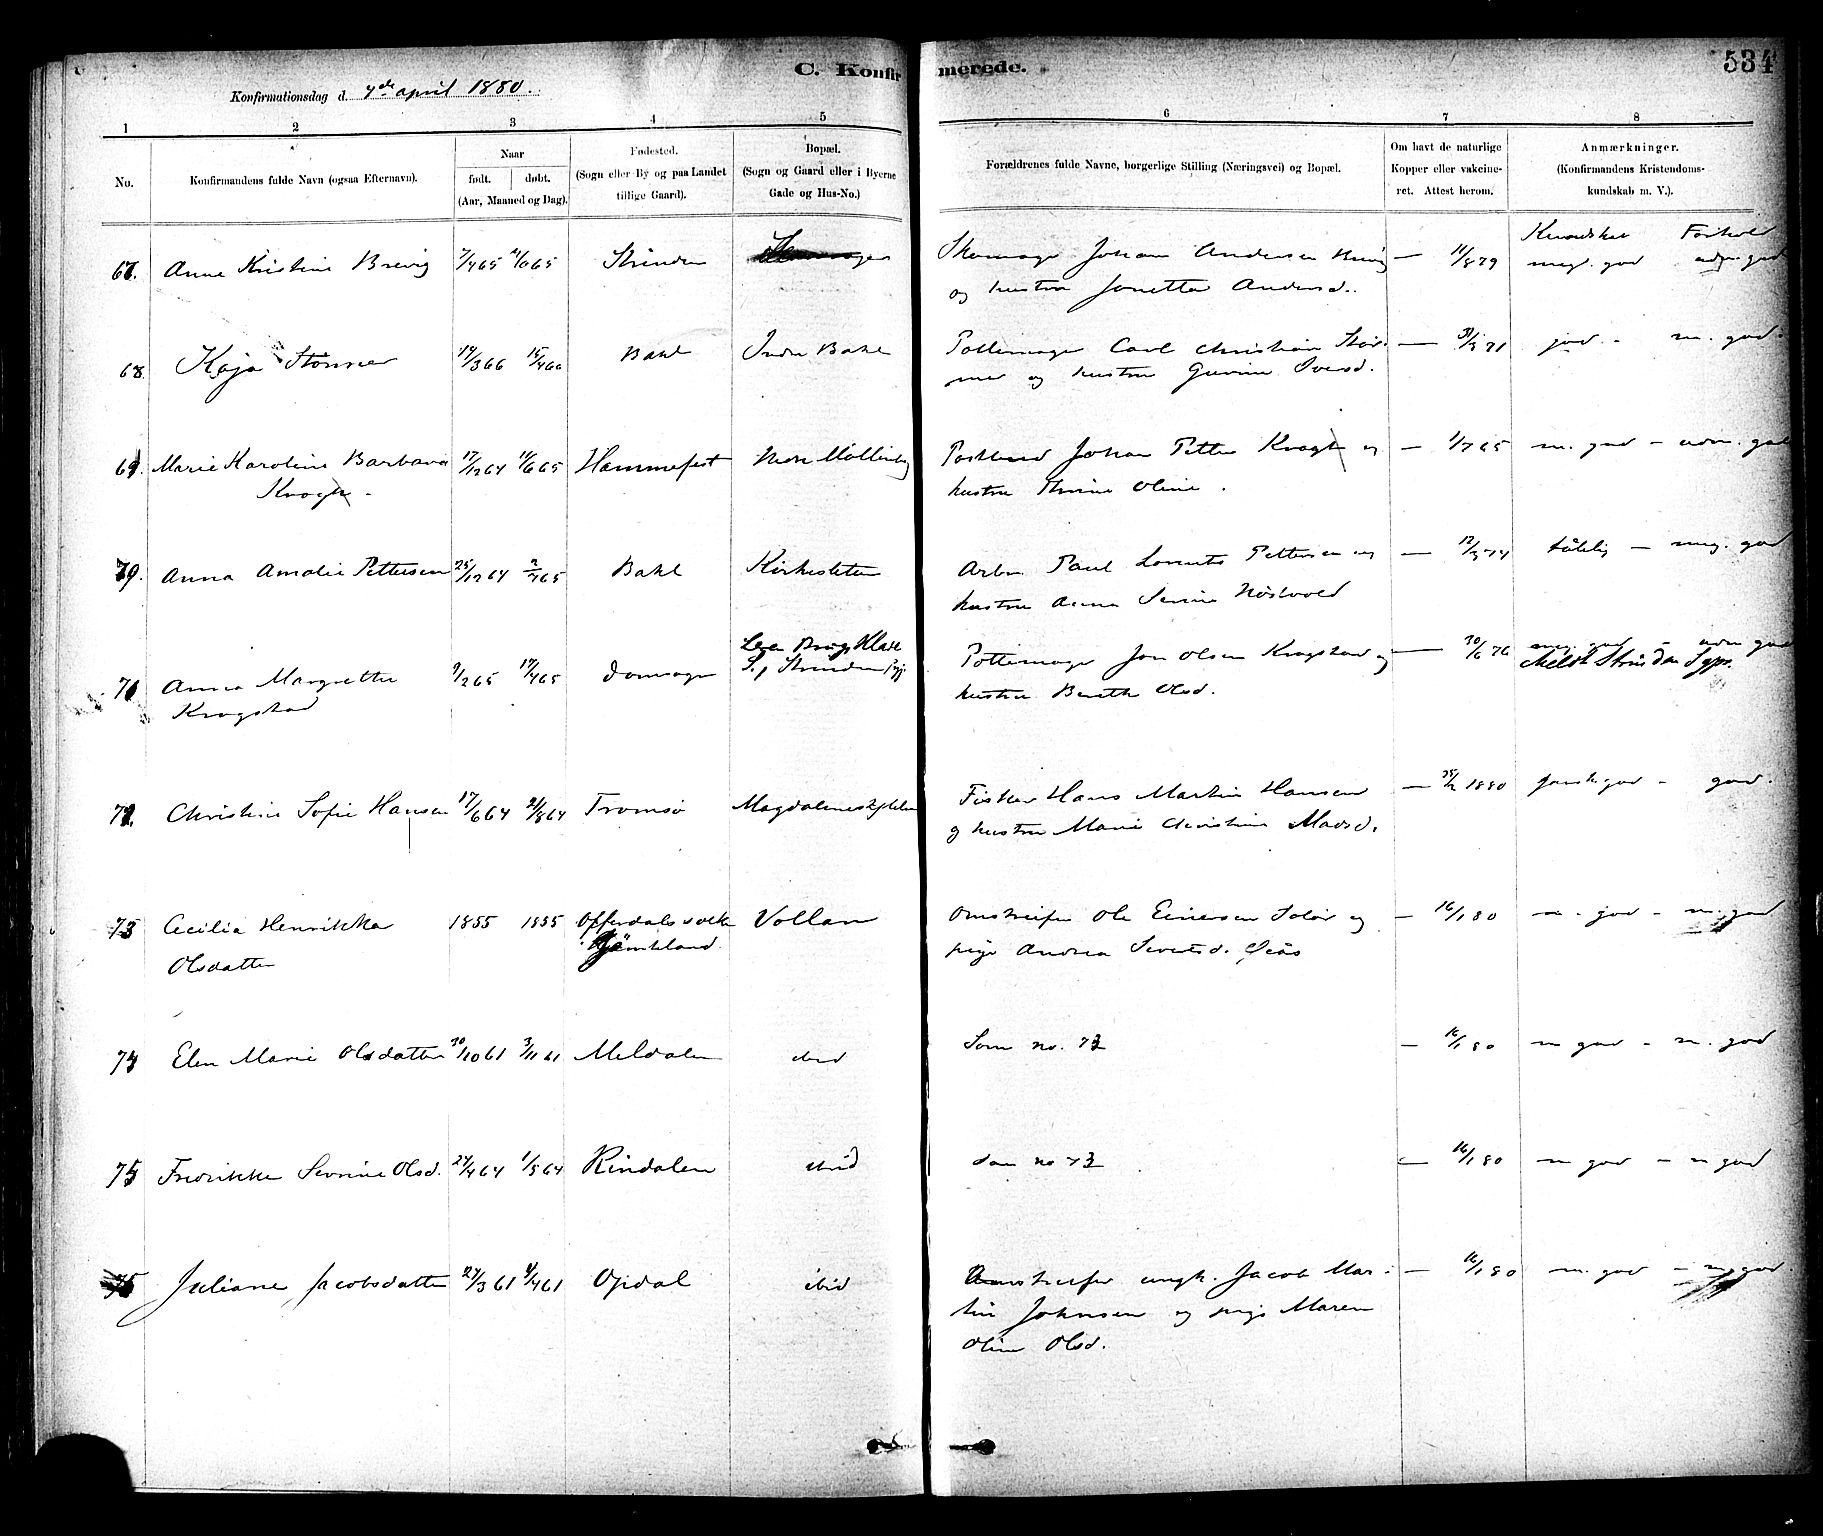 C. Konfirmerede. 534
Konfirmationsdag d. 7de april 1880.
1 2 3 4 5 6 7 8
No.
Konfirmandens fulde Navn (ogsaa Efternavn).
Naar
født. døbt.
(Aar, Maaned og Dag).
Fødested.
(Sogn eller By og paa Landet
tillige Gaard).
Bopæl.
(Sogn og Gaard eller i Byerne
Gade og Hus-No.)
Forældrenes fulde Navne, borgerlige Stilling (Næringsvei) og Bopæl.
Om havt de naturlige
Kopper eller vakcine-
ret. Attest herom.
Anmærkninger.
(Konfirmandens Kristendoms-
kundskab m. V.).
Kundskab Forhold
67. Anne Kristine Brevig 7/4 65 65 Strinden Skomager Johan Andersen Brevig — 11/8 79 meg. god udm. god
og hustru Jonetta Andersd.
68. Kaja Störmer 19/3 66 15/4 66 Bakl. Indre Bakl. Pottemager Carl Christian Stör- — 71 god - m. god
mer og hustru Gurine Iversd.
69. Marie Karoline Barbara 17/12 64 11/6 65 Hammerfest Nedre Möllenbg Postbud Johan Petter Krogh og — 1/7 65 m. god - udm. god
Krogh. hustru Oline.
70. Anna Amalie Pettersen 25/12 64 2/7 65 Bakl. Kirkesletten Arbm. Paul Lorents Pettersen og — 12/3 74 tålelig — meg. god
hustru Anna Serine
Strinden
71 Anna Margrethe 9/2 65 17/4 65 Domsogn Pottemager Jon Olsen Krogstad og — 30/6 76 meg. god udm. god
Krogstad hustru Berethe Olsd. Meldt Strinden Spr.
72. Christine Sofie Hansen 17/6 64 21/8 64 Tromsö Fisker Hans Martin Hansen — 1880 god - god.
og hustru Marie Christine Madsd.
73 Cecilia Henrikka 1855 1855 Offerdals sock. Vollan Omstreifer Ole Einersen Solör og — 16/1 80 m. god - m. god
Olsdatter i Jämtland. pige Andrea Sivertsd.
74 Elen Marie Olsdatter 30/10 61 3/11 61 Meldalen ibid Som no. 73 — 16/1 80 m god - m. god
75 Fredrikke Serine Olsd. 24/4 64 1/5 64 Rindalen ibid som no 73 — 16/1 80 m god - m god
76 Juliane Jacobsdatter 24/3 61 4/4 61 Opdal ibid Omstreifer ungk. Jacob Mar- — 16/1 80 m. god - m. god
tin Johnsen og pige Maren
Oline Olsd.